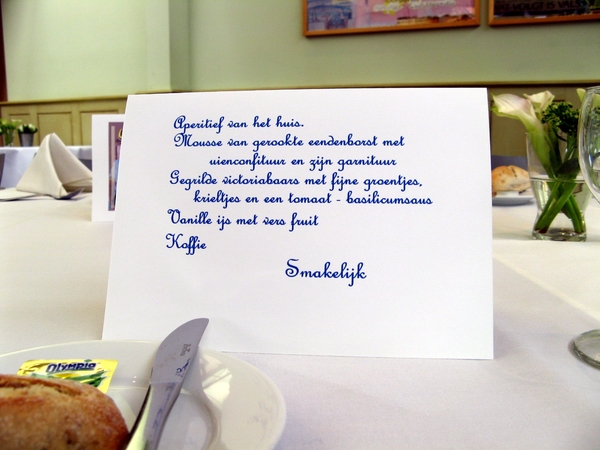 Aperitief van het huis.
Mousse van gerookte eendenborst met
uienconfituur en zijn garnituur
Gegrilde victoriabaars met fijne groentjes,
krieltjes en een tomaat - basilicumsaus
Vanille ijs met vers fruit
Koffie
Smakelijk
OLYMPIA